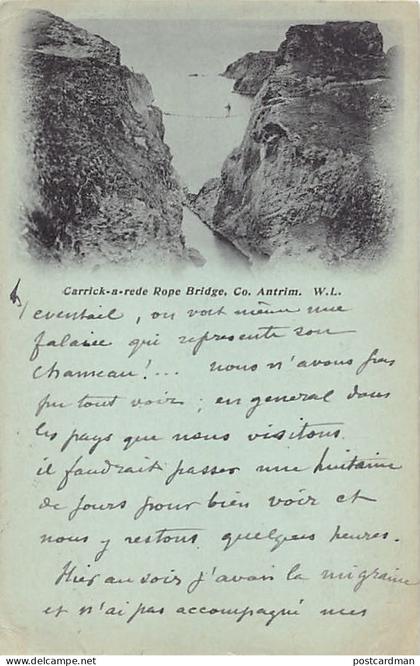 Carrick-a-rede Rope Bridge, Co. Antrim. W.L.
eventail, on voit même une
falaise qui represente son
chameau!... nous n'avons pas
pu tout voir; en general dans
les pays que nous visitons
il faudrait passer une huitaine
de jours pour bien voir et
nous y restons quelques heures.
Hier au soir j'avais la migraine
et n'ai pas accompagné mes
© postcardman - postcardman.com